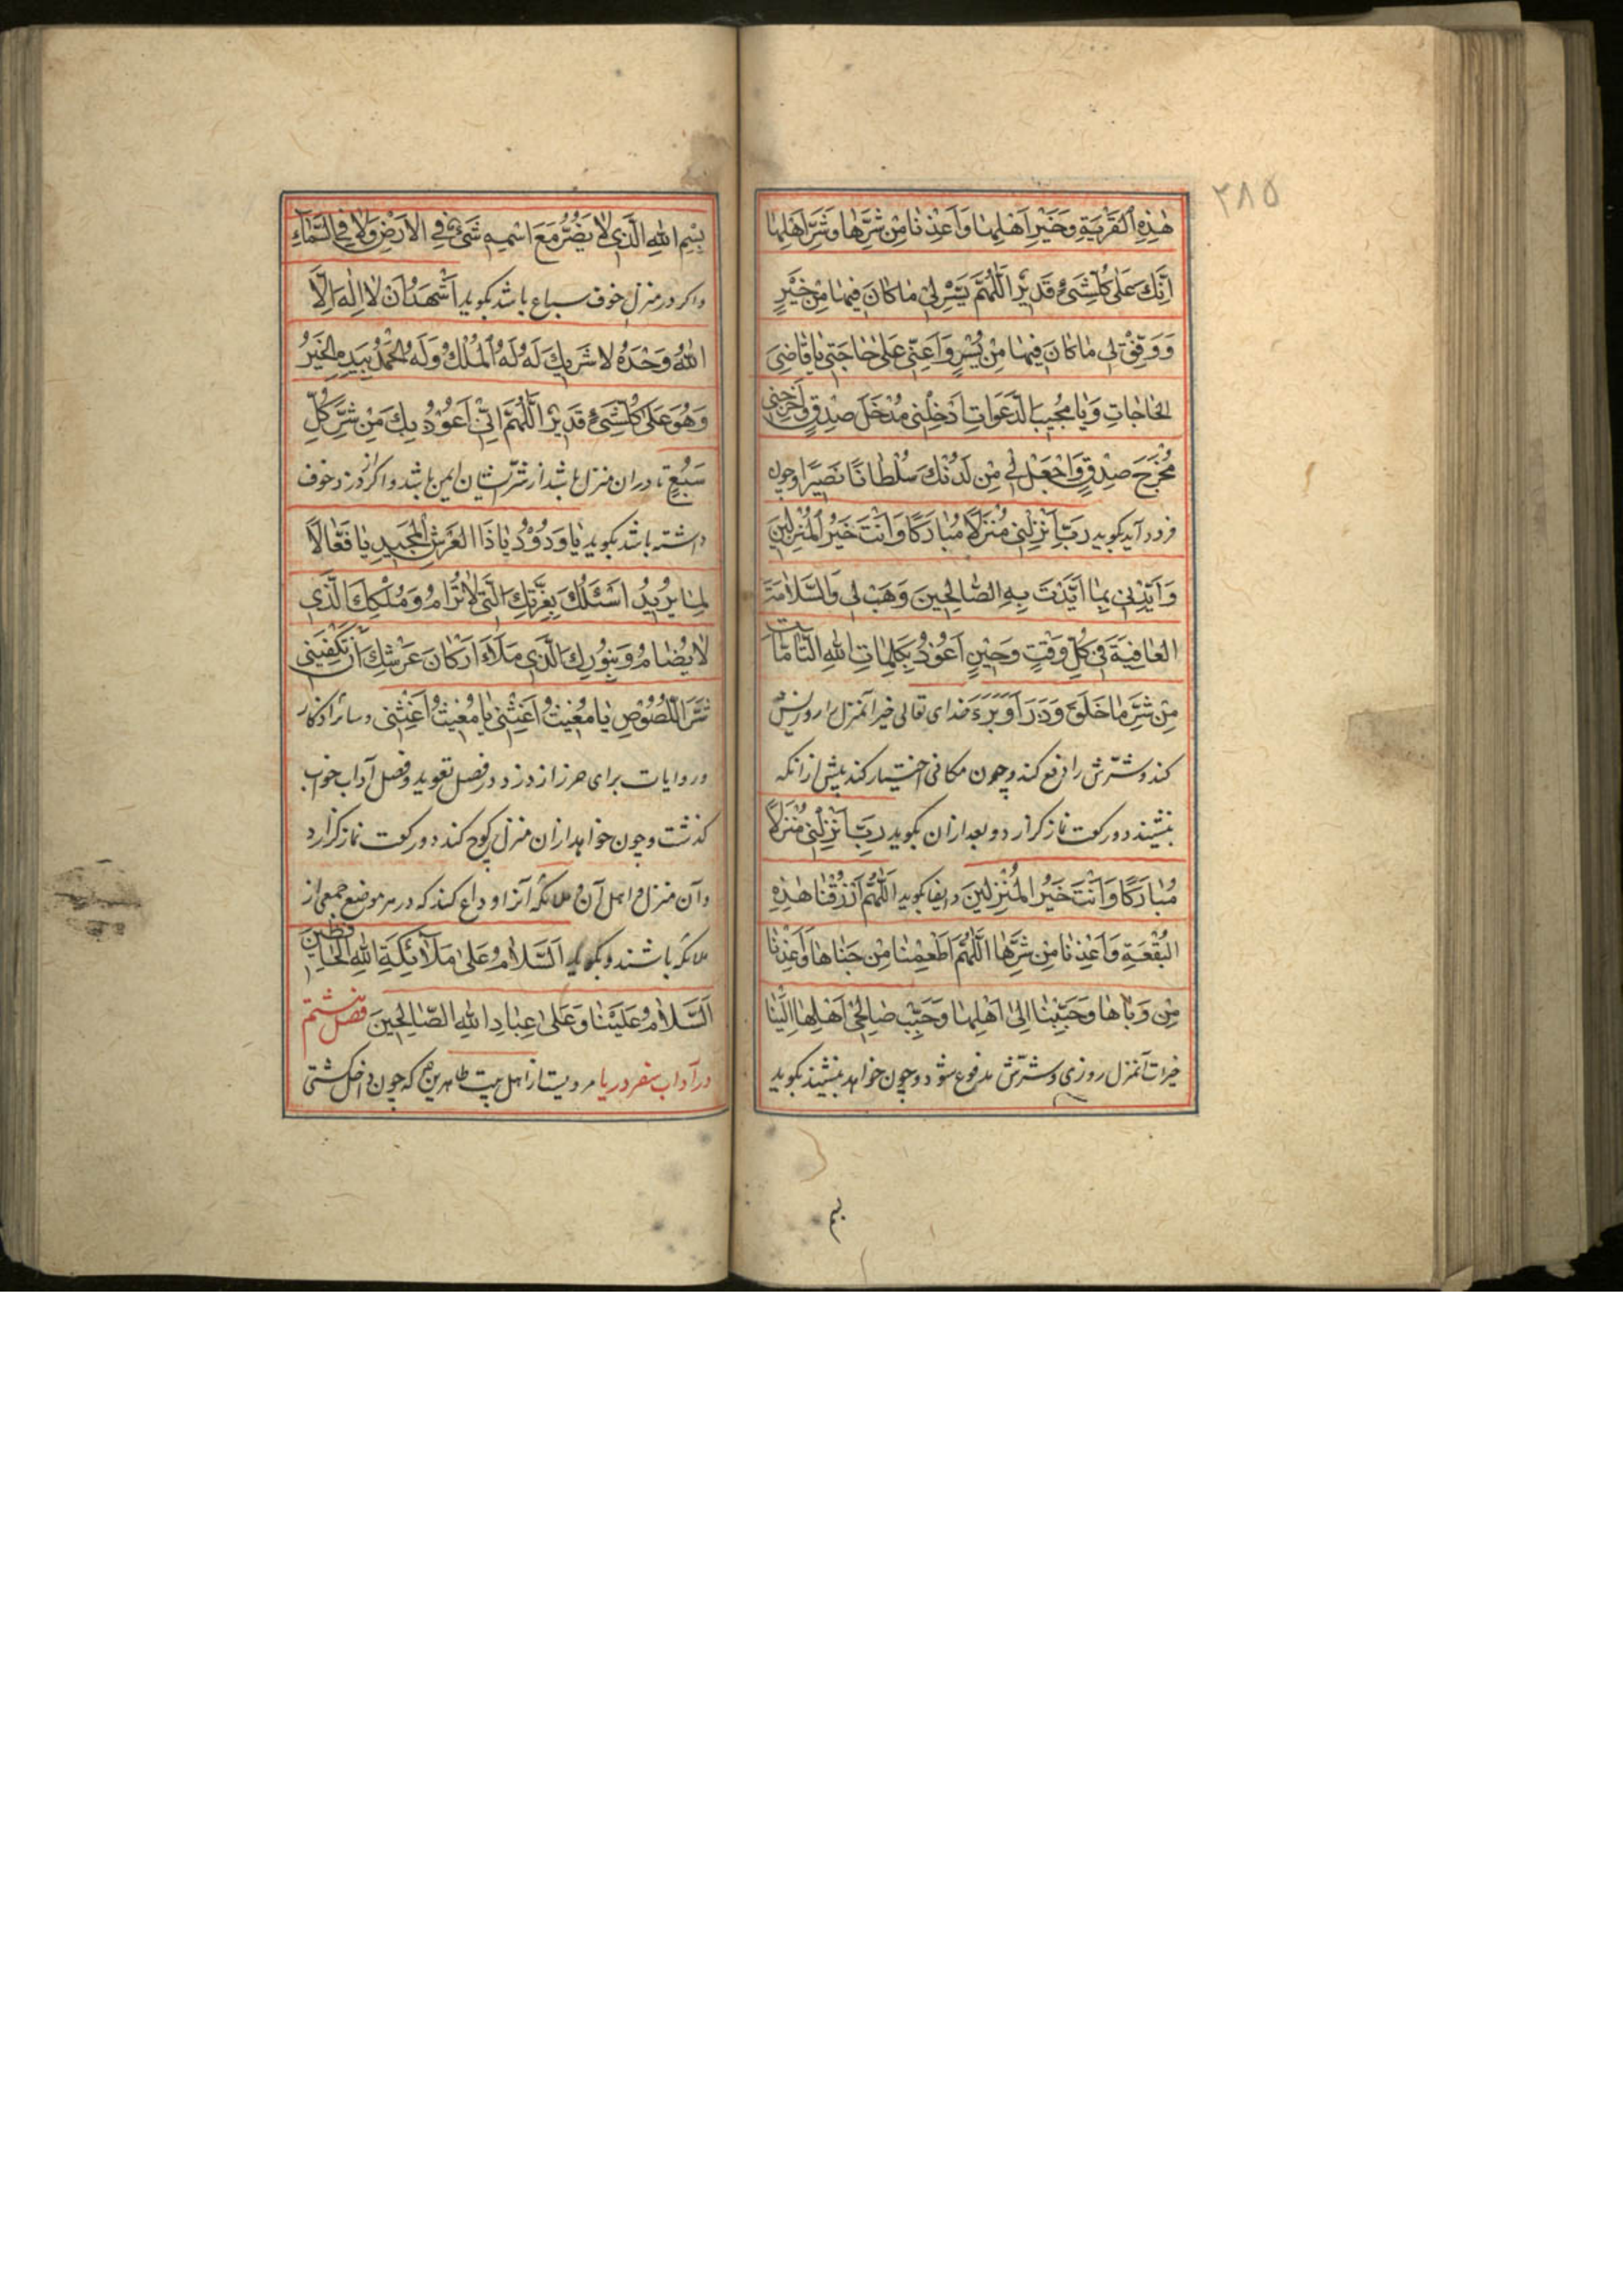 ٣٨٥
هٰذِهِ الْقَرْيَةِ وَخَيْرَ اَهْلِهٰا وَاَعِذْنٰا مِنْ شَرِّهٰا وَشَرِّ اَهْلِهٰا
اِنَّكَ عَلٰى كُلِّ شَىْءٍ قَدِيْرٌ اَللّٰهُمَّ يَسِّرْ لِىْ مٰا كٰانَ فِيهٰا مِنْ خَيْرٍ
وَوَفِّقْ لِى مٰا كٰانَ فِيهٰا مِنْ يُسْرٍ وَاَعِنِّى عَلٰى حٰاجَتِى يٰا قٰاضِىَ
الْحٰاجٰاتِ وَيٰا مُجِيبَ الدَّعَوٰاتِ اَدْخِلْنِى مُدْخَلَ صِدْقٍ وَاَخْرِجْنِى
مُخْرَجَ صِدْقٍ وَاجْعَلْ لِى مِنْ لَدُنْكَ سُلْطٰانًا نَصِيْرًا وچون
فرود آید بکوید رَبِّ اَنْزِلْنِى مُنْزَلًا مُبٰارَكًا وَاَنْتَ خَيْرُ الْمُنْزِلِينَ
وَاَيِّدْنِى بِمٰا اَيَّدْتَ بِهِ الصّٰالِحِينَ وَهَبْ لِى وَالسَّلٰامَةَ
الْعٰافِيَةَ فِى كُلِّ وَقْتٍ وَحِيْنٍ اَعُوْذُ بِكَلِمٰاتِ اللّٰهِ التّٰامّٰاتِ
مِنْ شَرِّ مٰا خَلَقَ وَذَرَاَ وَبَرَءَ خدای تعالی خیر آنمنزل را روزیش
کند و شرّش را دفع کند وچون مکانی اختیار کند پیش از انکه
بنشیند دو رکعت نماز کزارد و بعد از ان بکوید رَبِّ اَنْزِلْنِى مُنْزَلًا
مُبٰارَكًا وَاَنْتَ خَيْرُ الْمُنْزِلِينَ وایضا بکوید اَللّٰهُمَّ ارْزُقْنٰا هٰذِهِ
الْبُقْعَةِ وَاَعِذْنٰا مِنْ شَرِّهٰا اَللّٰهُمَّ اَطْعِمْنٰا مِنْ جَنٰاهٰا وَاَعِذْنٰا
مِنْ وَبٰاهٰا وَحَبِّبْنٰا اِلىٰ اَهْلِهٰا وَحَبِّبْ صٰالِحِىْ اَهْلِهٰا اِلَيْنٰا
خیرات آنمنزل روزی و شرّش مدفوع شود وچون خواهد بنشیند بکوید
بسم
بِسْمِ اللّٰهِ الَّذِى لٰا يَضُرُّ مَعَ اسْمِهِ شَىْءٌ فِى الْاَرْضِ وَلٰا فِى السَّمٰآءِ
واکر در منزل خوف سباع باشد بکوید اَشْهَدُ اَنْ لٰا اِلٰهَ اِلَّا
اللّٰهُ وَحْدَهُ لٰا شَرِيكَ لَهُ لَهُ الْمُلْكُ وَلَهُ الْحَمْدُ بِيَدِهِ الْخَيْرُ
وَهُوَ عَلٰى كُلِّ شَىْءٍ قَدِيْرٌ اَللّٰهُمَّ اِنِّى اَعُوْذُ بِكَ مِنْ شَرِّ كُلِّ
سَبُعٍ تا دران منزل باشد از شرّ ایشان ایمن باشد و اکر از دزد خوف
داشته باشد بکوید يٰا وَدُوْدُ يٰا ذَا الْعَرْشِ الْمَجِيدِ يٰا فَعّٰالًا
لِمٰا يُرِيْدُ اَسْئَلُكَ بِعِزَّتِكَ الَّتِى لٰا تُرٰامُ وَمُلْكِكَ الَّذِى
لٰا يُضٰامُ وَبِنُوْرِكَ الَّذِى مَلَاَ اَرْكٰانَ عَرْشِكَ اَنْ تَكْفِيَنِى
شَرَّ اللُّصُوْصِ يٰا مُغِيثُ اَغِثْنِى يٰا مُغِيثُ اَغِثْنِى وسائر اذکار
وروایات برای حرز از دزد در فصل تعوید وفصل آداب خواب
کذشت وچون خواهد از ان منزل کوچ کند دو رکعت نماز کزارد
وآن منزل و اهل آن و ملائکه آنرا وداع کند که در هر موضع جمعی از
ملائکه باشند وبکوید اَلسَّلٰامُ عَلٰى مَلٰآئِكَةِ اللّٰهِ الْحٰافِظِينَ
اَلسَّلٰامُ عَلَيْنٰا وَعَلٰى عِبٰادِ اللّٰهِ الصّٰالِحِينَ فصل هشتم
در آداب سفر دریا مرویست از اهل بیت طاهرین که چون داخل کشتی